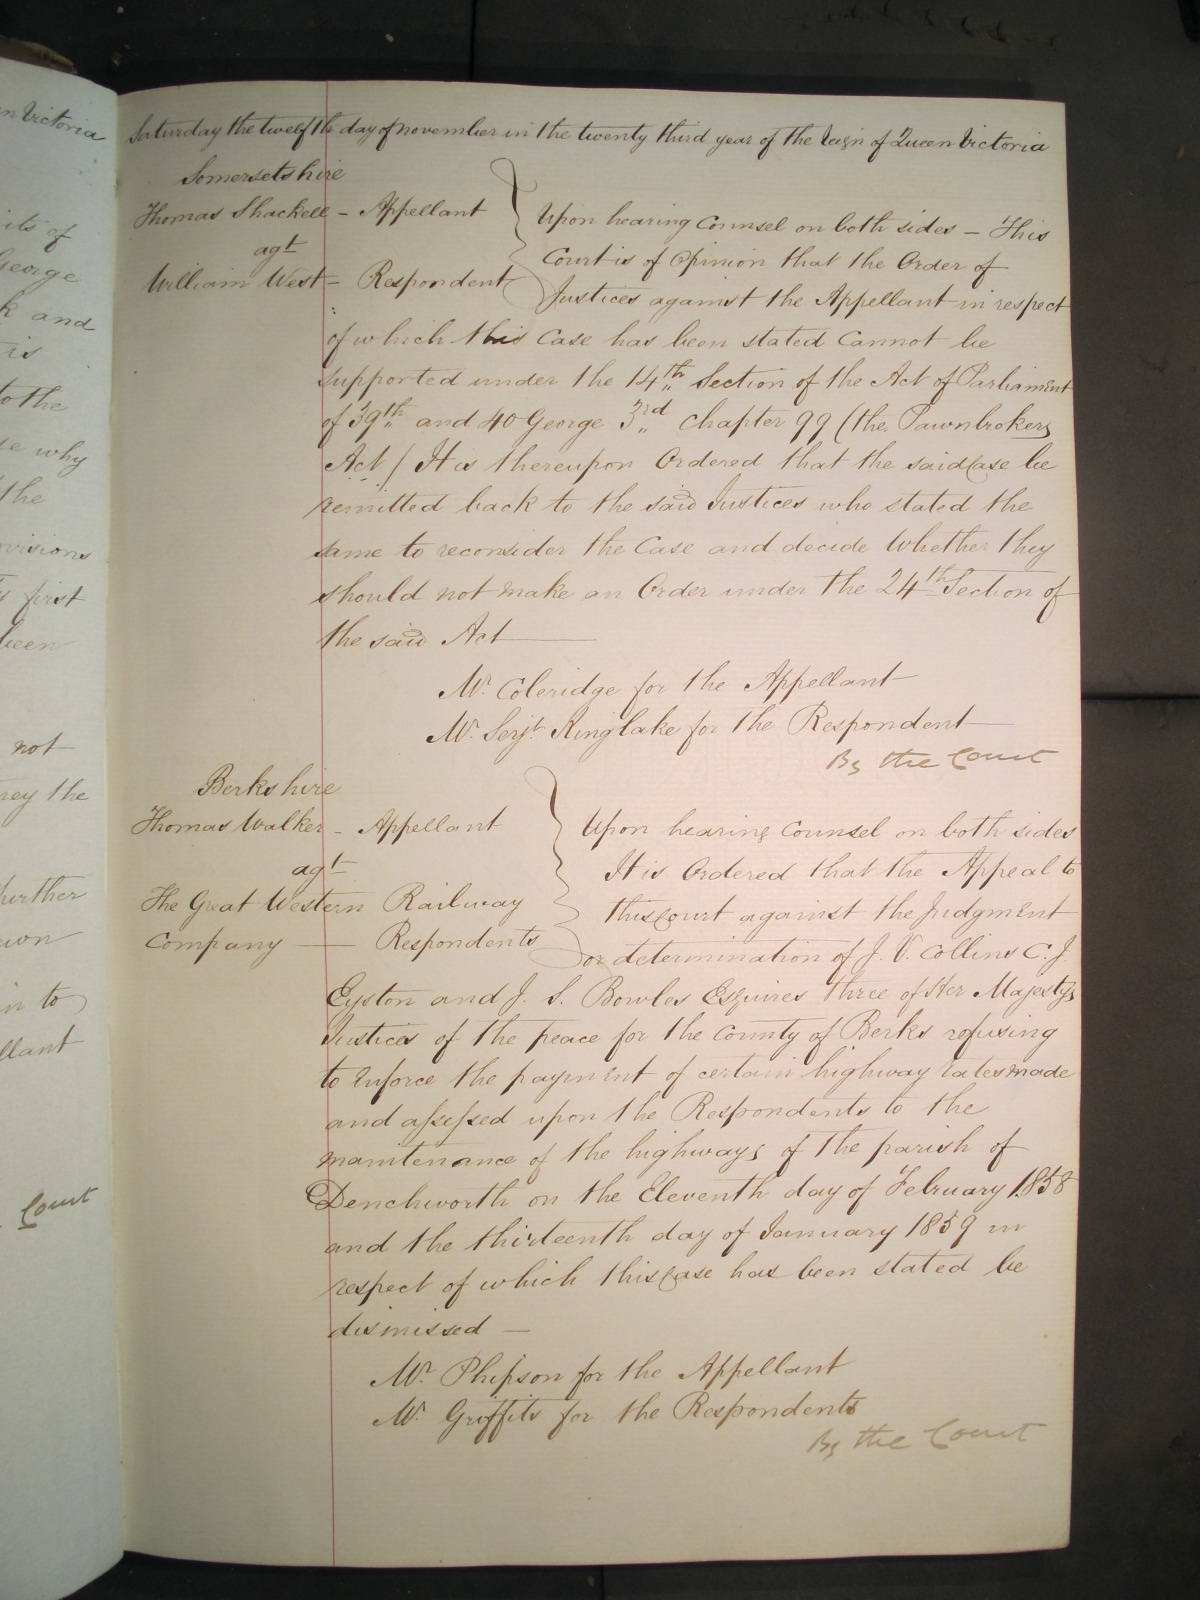 Saturday the twelfth day of november in the twenty third year of the Reign of Queen Victoria
Somersetshire
Thomas Shackell - Appellant
agt
William West - Respondent
Upon hearing Counsel on both sides - This
Court is of Opinion that the Order of
Justices against the Appellant in respect
of which this Case has been stated Cannot be
supported under the 14th Section of the Act of Parliament
of 39th and 40 George 3rd Chapter 99 (the Pawnbrokers
Act ( It is thereupon Ordered that the said Case be
remitted back to the said Justices who stated the
same to reconsider the Case and decide Whether they
should not make an Order under the 24th Section of
the said Act
Mr. Coleridge for the Appellant
Mr. Serjt. Kinglake for the Respondent
By the Court
Berkshire
Thomas Walker - Appellant
agt
The Great Western Railway
Company - Respondents
Upon hearing Counsel on both sides
It is Ordered that the Appeal to
this Court against the Judgment
or determination of J. V. Collins C. J.
Eyston and J. S. Bowles Esquires three of Her Majesty's
Justices of the peace for the County of Berks refusing
to enforce the payment of certain highway rates made
and assessed upon the Respondents to the
maintenance of the highways of the parish of
Denchworth on the Eleventh day of February 1858
and the thirteenth day of January 1859 in
respect of which this Case has been stated be
dismissed -
Mr. Phipson for the Appellant
Mr. Griffits for the Respondents
By the Court
Victoria
its of
George
k and
is
to the
why
the
first
been
not
the
further
in to
Court